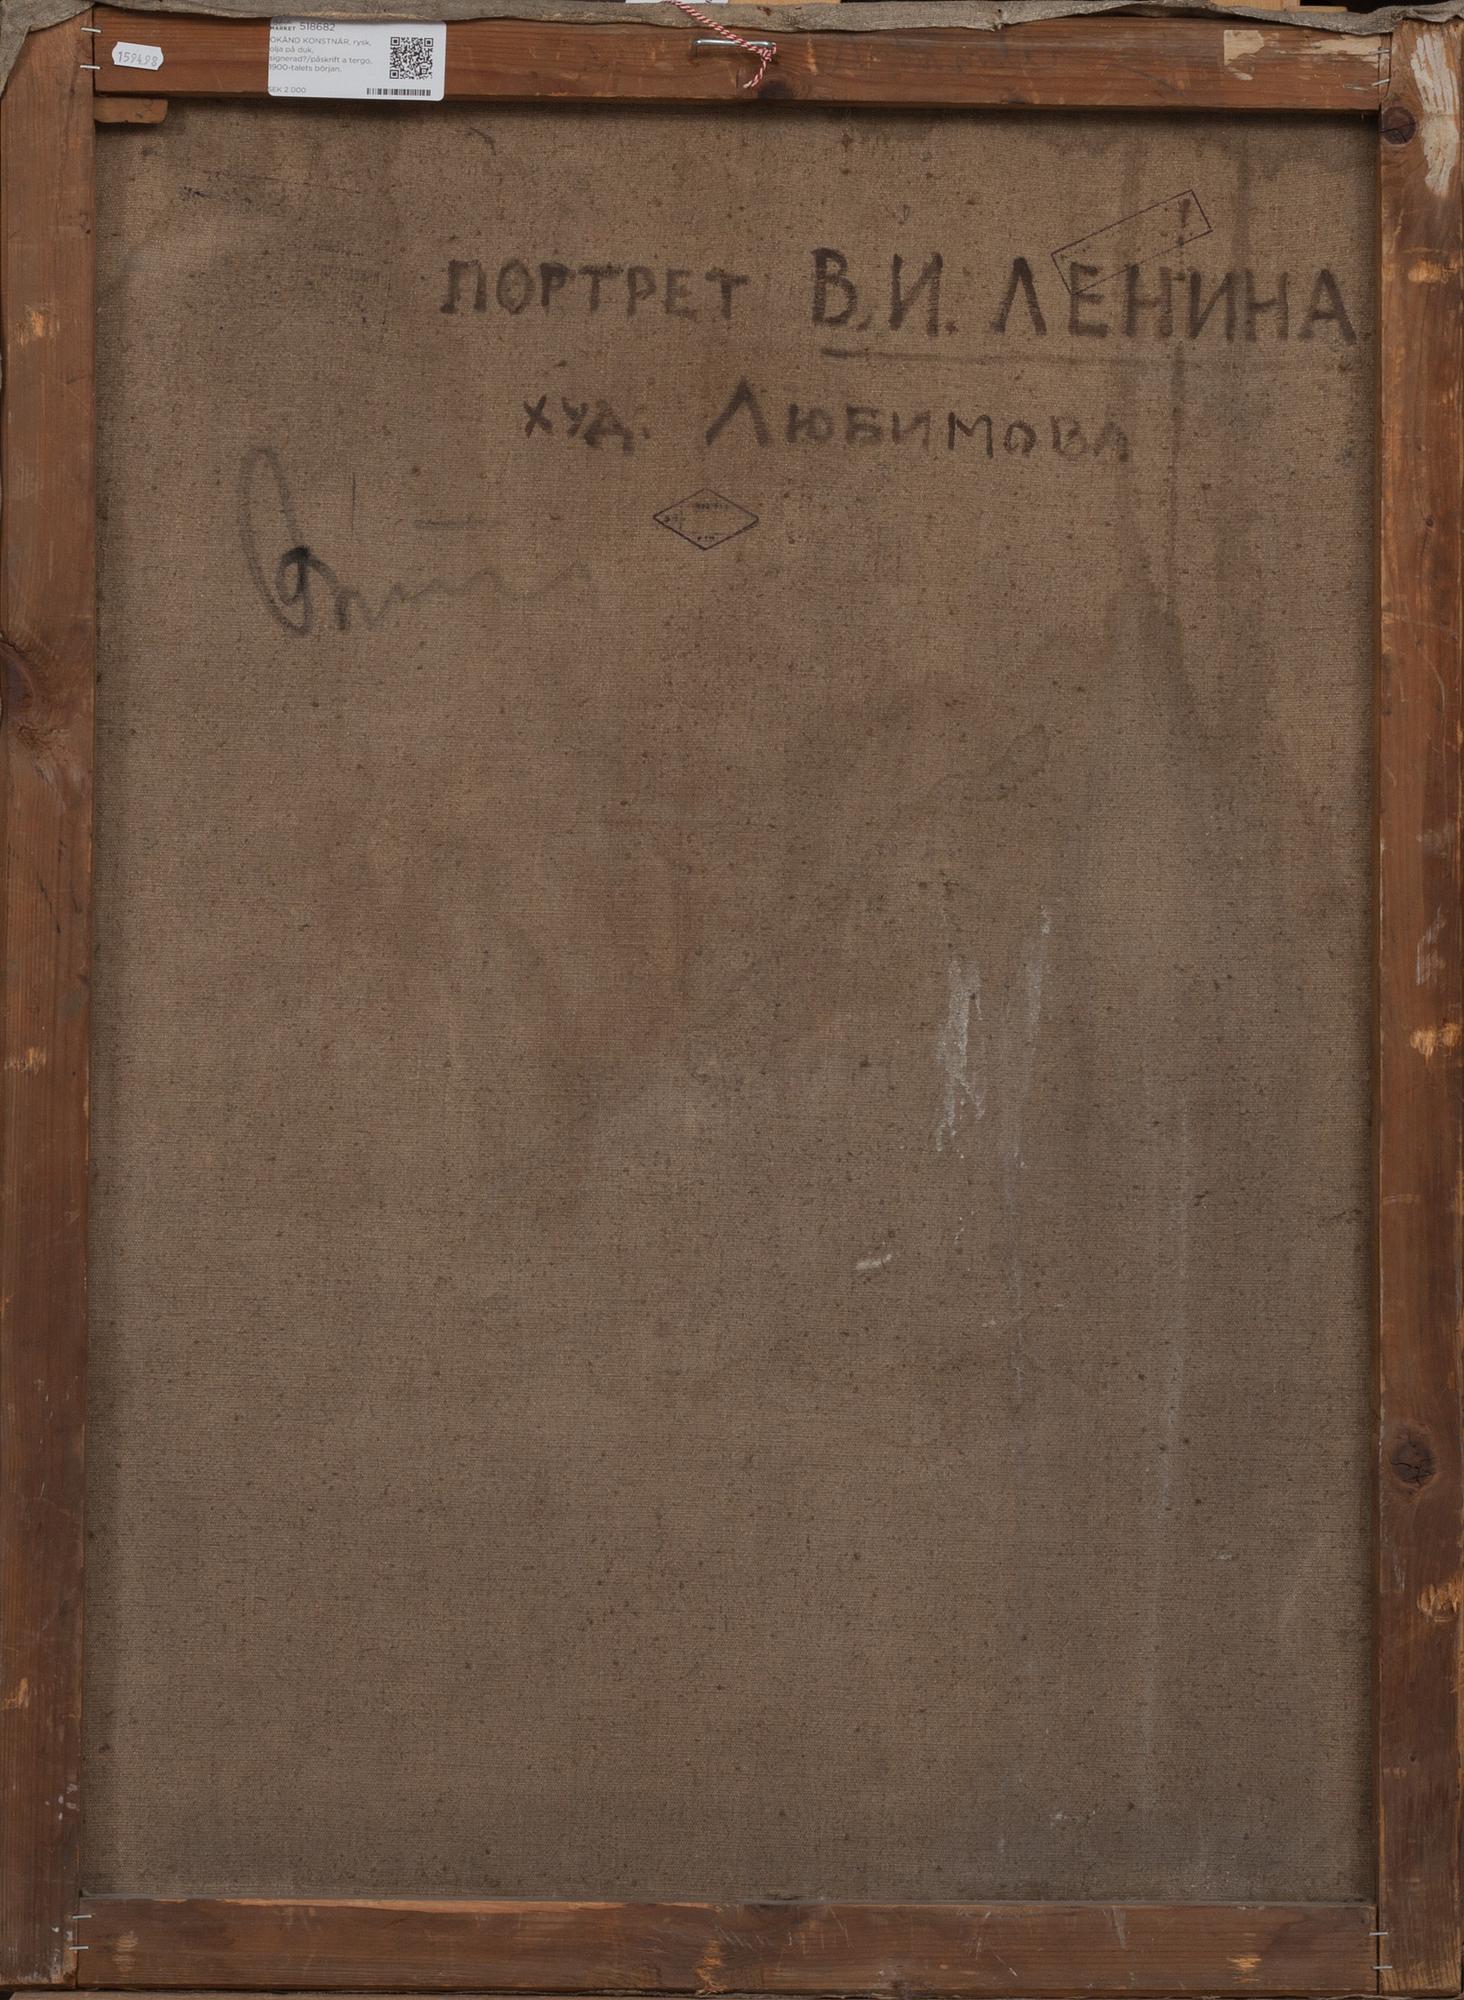 159498
MARKET 518682
OKÄND KONSTNÄR, rysk,
olja på duk,
signerad?/påskrift a tergo,
1900-talets början.
SEK 2 000
ПОРТРЕТ В.И. ЛЕНИНА
ХУД. ЛЮБИМОВА